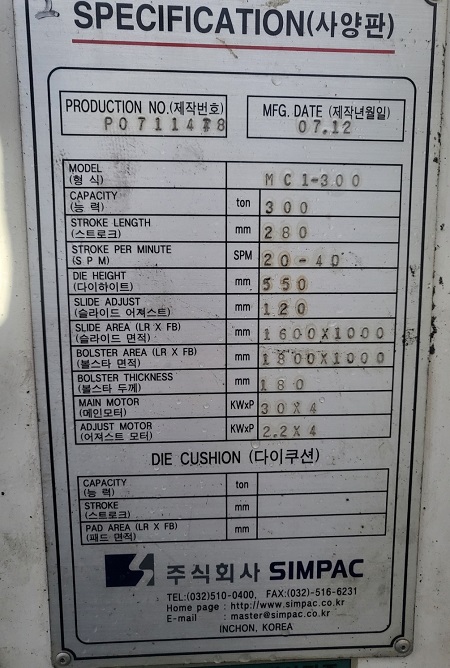 SPECIFICATION(사양판)
PRODUCTION NO.(제작번호)
MFG. DATE (제작년월일)
07.12
MODEL
(형 식)
MC1-300
CAPACITY
(능 력)
ton
300
STROKE LENGTH
(스트로크)
mm
280
STROKE PER MINUTE
(S P M)
SPM
20-40
DIE HEIGHT
(다이하이트)
mm
550
SLIDE ADJUST
(슬라이드 어져스트)
mm
120
SLIDE AREA (LR X FB)
(슬라이드 면적)
mm
1600X1000
BOLSTER AREA (LR X FB)
(볼스타 면적)
mm
1800X1000
BOLSTER THICKNESS
(볼스타 두께)
mm
180
MAIN MOTOR
(메인모터)
KWxP
30X4
ADJUST MOTOR
(어져스트 모터)
KWxP
2.2X4
DIE CUSHION (다이쿠션)
CAPACITY
(능 력)
ton
STROKE
(스트로크)
mm
PAD AREA (LR X FB)
(패드 면적)
mm
주식회사 SIMPAC
TEL:(032)510-0400, FAX:(032)-516-6231
Home page : http://www.simpac.co.kr
E-mail : master@simpac.co.kr
INCHON, KOREA